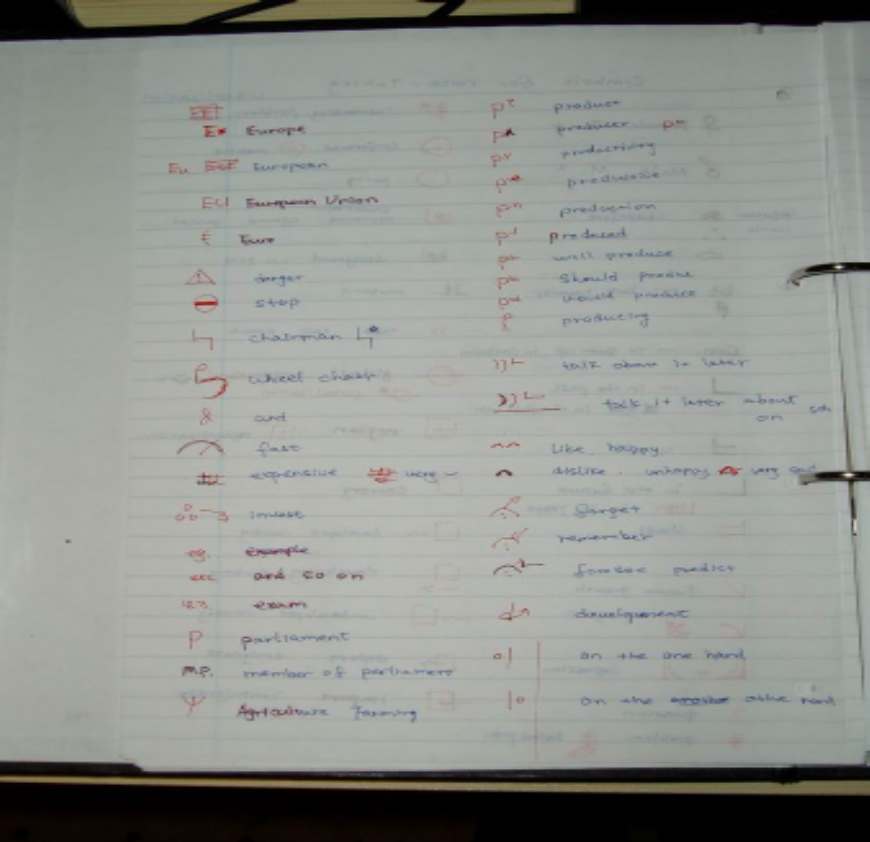 E Europe
Eu European
EU European Union
€ Euro
danger
stop
chairman
wheel chair
& and
fast
expensive very
invest
eg. example
etc and so on
123 exam
P parliament
M.P. member of parliament
Agriculture farming
pt product
pr producer pr
py productivity
pe
pn production
pd produced
will produce
should produce
would produce
producing
talk about it later
talk it later about
on
like happy
dislike unhappy very sad
forget
remember
foresee predict
development
on the one hand
on the other hand